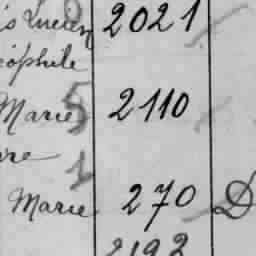 is Lucien 2021
éophile
Marie 5 2110
re 1
Marie 270 D
2192